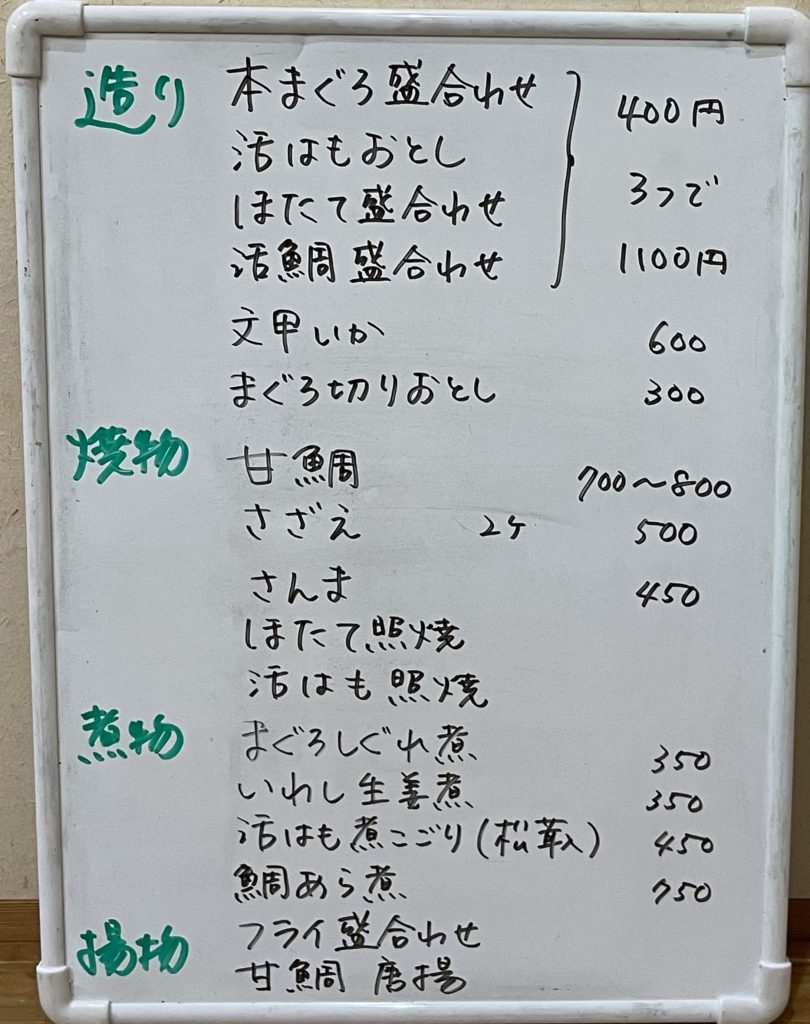 造り 本まぐろ盛合わせ 400円
活はもおとし
ほたて盛合わせ 3つで
活鯛盛合わせ 1100円
文甲いか 600
まぐろ切りおとし 300
焼物 甘鯛 700〜800
さざえ 2ケ 500
さんま 450
ほたて照焼
活はも照焼
煮物 まぐろしぐれ煮 350
いわし生姜煮 350
活はも煮こごり(松茸入) 450
鯛あら煮 750
揚物 フライ盛合わせ
甘鯛 唐揚